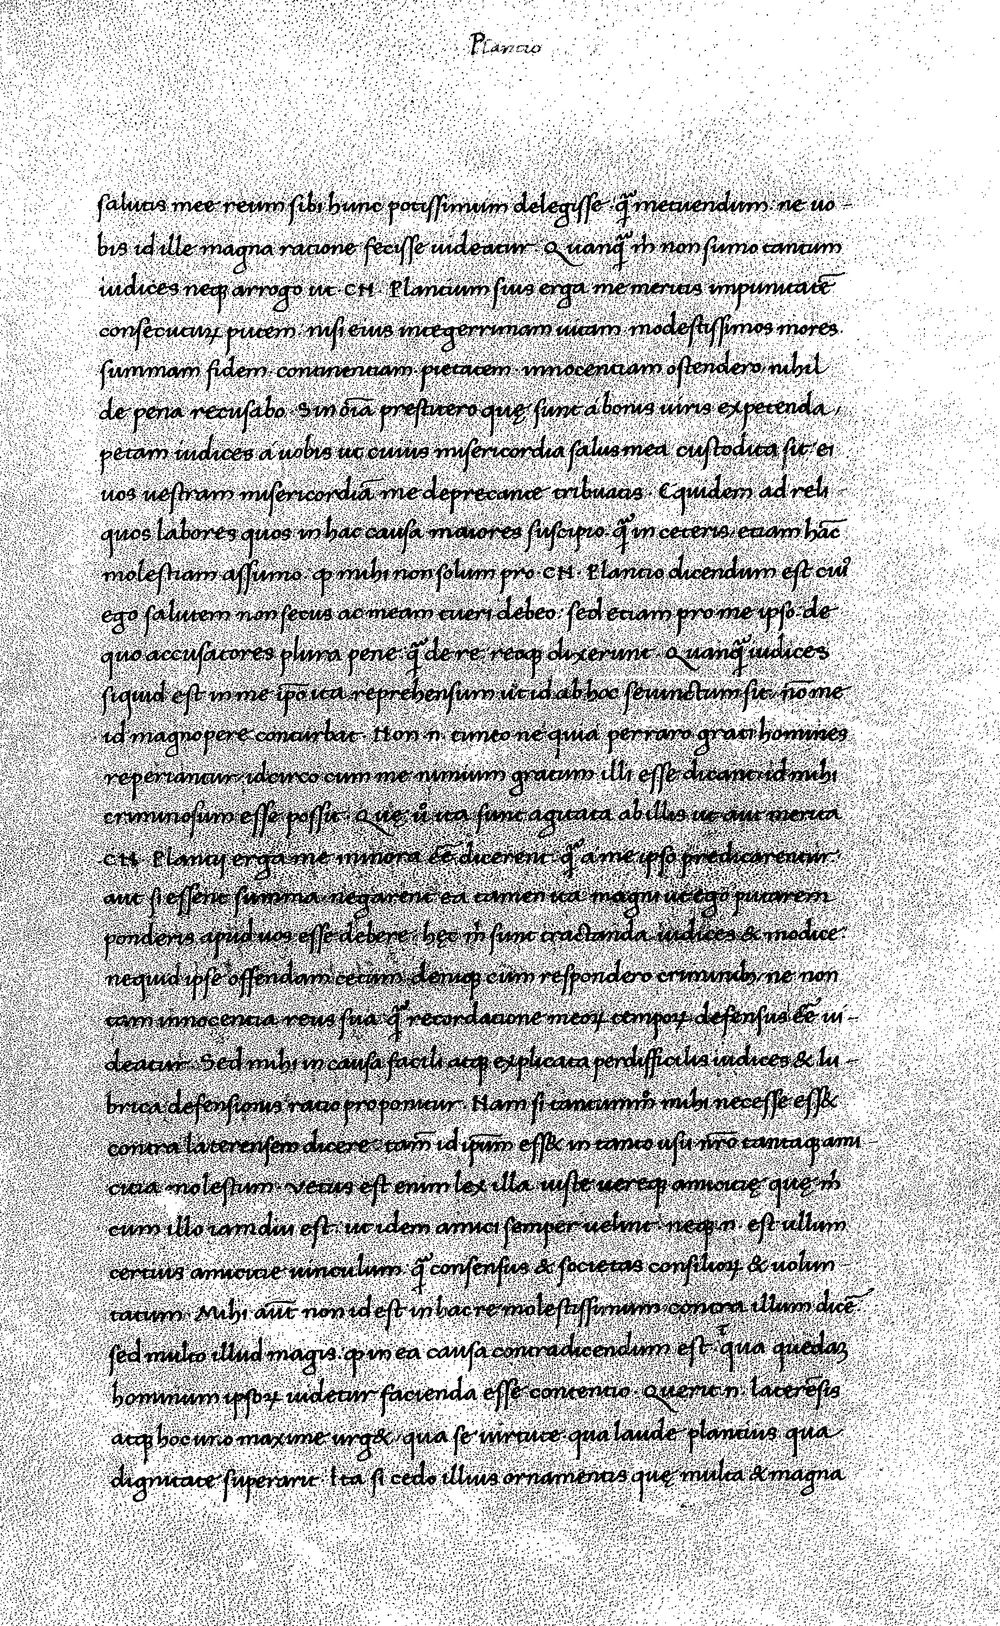 Plancio
salutis mee reum sibi hunc potissimum delegisse · q̃ metuendum · ne uo-
bis id ille magna ratione fecisse uideatur · Quanq̃ m̃ non sumo tantum
iudices neqꝫ arrogo ut · CN · Plancium suis erga me meritis impunitatẽ
consecuturꝝ putem · nisi eius integerrimam uitam modestissimos mores
summam fidem · continentiam · pietatem · innocentiam ostendero nihil
de pena recusabo · Sin oĩa prestitero quę sunt a bonis uiris expetenda,
petam iudices a uobis ut cuius misericordia salus mea custodita sit · ei
uos uestram misericordiã me deprecante tribuatis · Equidem ad reli-
quos labores quos in hac causa maiores suscipio · q̃ in ceteris, etiam hãc
molestiam assumo · ꝙ mihi non solum pro · CN · Plancio dicendum est cui᷒
ego salutem non secus ac meam tueri debeo · sed etiam pro me ipso · de
quo accusatores plura pene q̃ de re · reoqꝫ dixerunt · Quanq̃ iudices
siquid est in me ip̃o ita reprehensum ut id ab hoc seiunctum sit · nõ me
id magnopere conturbat · Non · n · timeo ne quia perraro grati homines
reperiantur, idcirco cum me nimium gratum illi esse dicant · id mihi
criminosum esse possit · Quę u̾ ita sunt agitata ab illis ut aut merita
CN Plancij erga me minora eẽ dicerent · q̃ a me ipso predicarentur ·
aut si essent summa negarent ea tamen ita magni ut ego putarem
ponderis apud uos esse debere · hęc m̃ sunt tractanda iudices & modice ·
nequid ipse offendam · tum deniqꝫ cum respondero criminibꝫ, ne non
tam innocentia reus sua q̃ recordatione meoꝝ tempoꝝ defensus eẽ ui-
deatur · Sed mihi in causa facili atqꝫ explicata perdifficilis iudices & lu-
brica defensionis ratio proponitur · Nam si tantummõ mihi necesse ess&
contra laterensem dicere · tam̃ id ip̃um ess& in tanto usu nr̃o tantaqꝫ ami-
citia molestum · Vetus est enim lex illa iuste uereqꝫ amicicię quę m̃
cum illo iam diu est · ut idem amici semper uelint · neqꝫ · n · est ullum
certius amicicie uinculum · q̃ consensus & societas consilioꝝ & uolun-
tatum · Mihi aũt non id est in hac re molestissimum contra illum dicẽ ·
sed multo illud magis ꝙ in ea causa contradicendum est · iqua quedaꝫ
hominum ipsoꝝ uidetur facienda esse contentio · Querit · n · laterẽsis
atqꝫ hoc uno maxime urg&, qua se uirtute · qua laude plantius qua
dignitate superarit · Ita si cedo illius ornamentis quę multa & magna